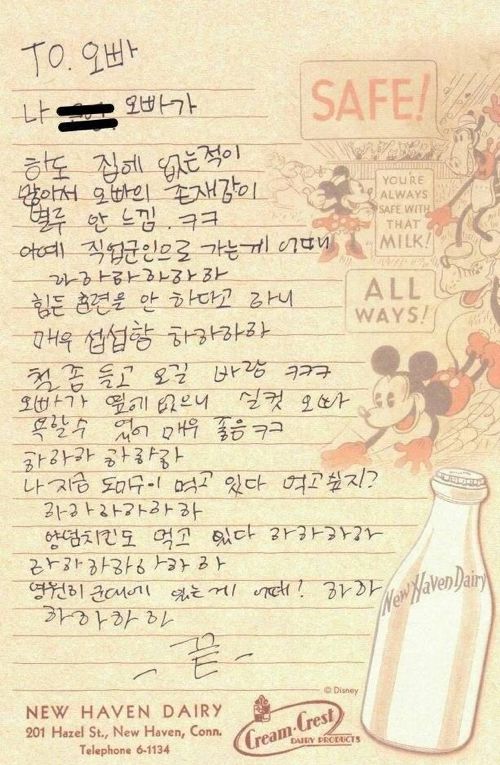 TO. 오빠
나 오빠가
하도 집에 없는적이
많아서 오빠의 존재감이
별루 안 느낌. ㅋㅋ
아예 직업군인으로 가는게 어때
하하하하하하
힘든 훈련을 안 하다고 하니
매우 섭섭함 하하하하
철 좀 들고 오길 바람 ㅋㅋㅋ
오빠가 옆에 없으니 실컷 오빠
욕할수 있어 매우 좋음ㅋㅋ
하하하 하하하
나 지금 도미누이 먹고 있다 먹고싶지?
하하하하하하
양념치킨도 먹고 있다 하하하하
하하하하하하하
영원히 군대에 있는게 어때! 하하
하하하하
- 끝 -
SAFE!
YOU'RE
ALWAYS
SAFE WITH
THAT
MILK!
ALL
WAYS!
New Haven Dairy
© Disney
NEW HAVEN DAIRY
201 Hazel St., New Haven, Conn.
Telephone 6-1134
Cream-Crest
DAIRY PRODUCTS